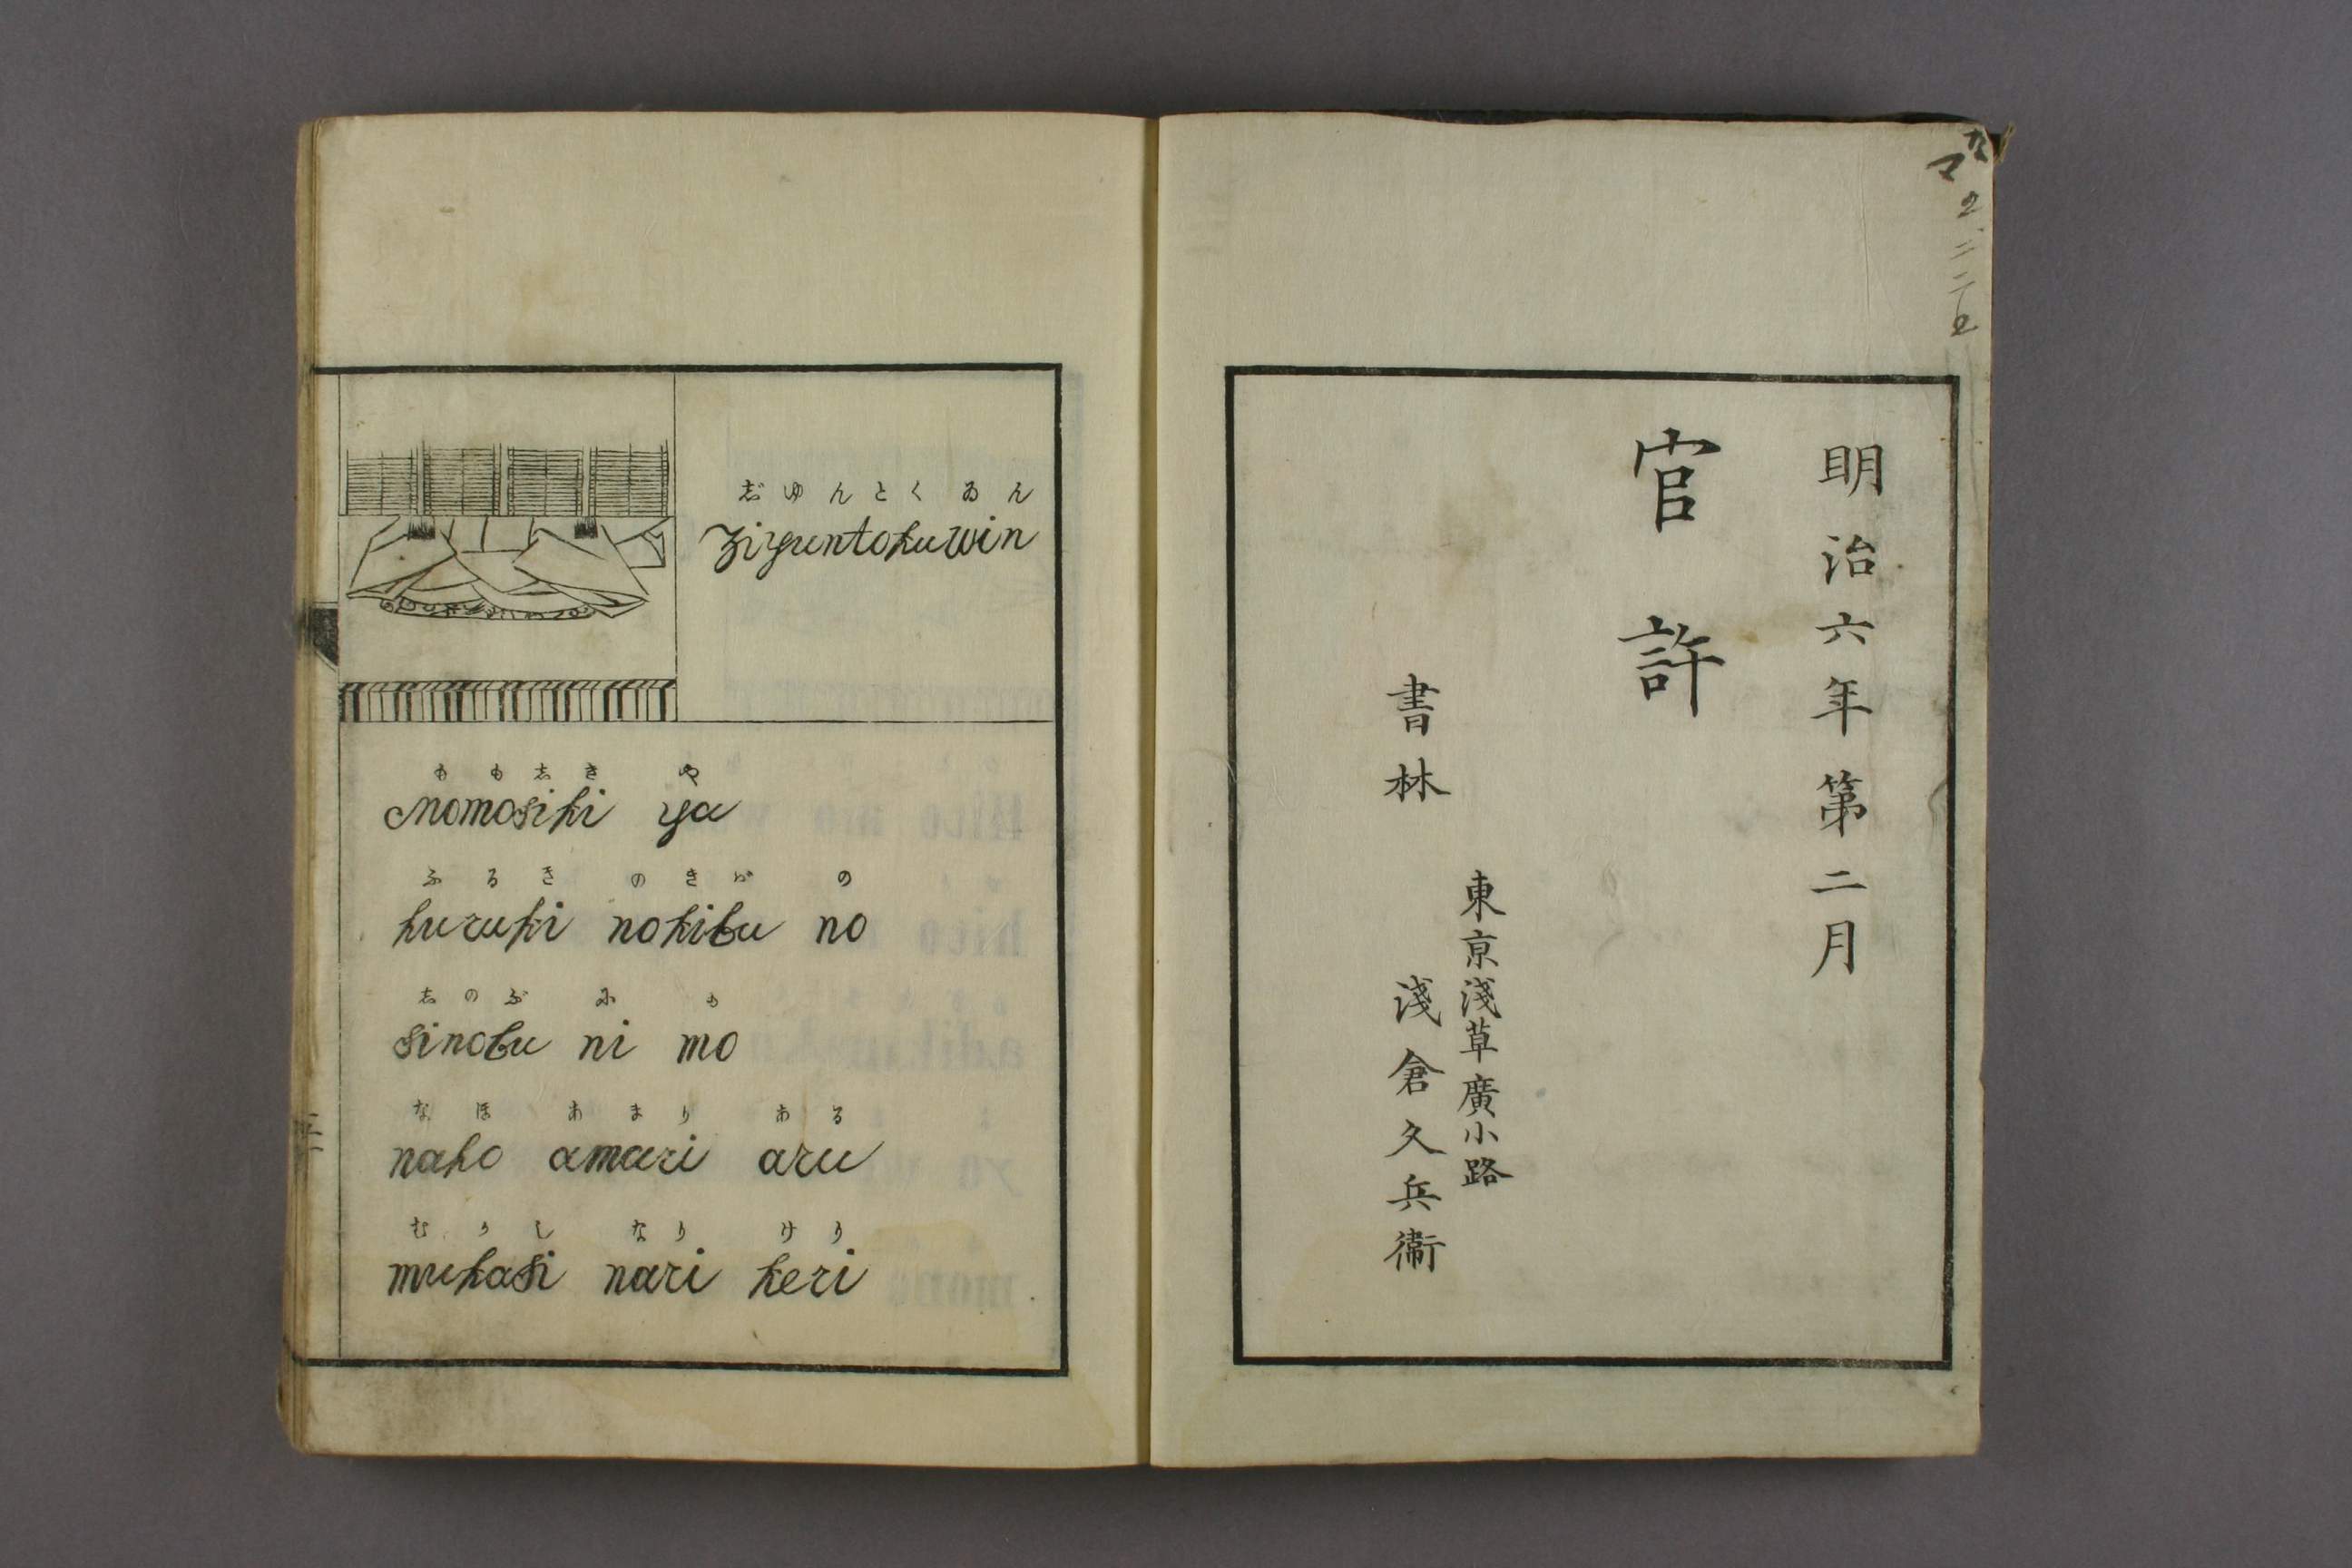 明治六年第二月
官許
東京淺草廣小路
書林 淺倉久兵衞
志゛ゆんとくゐん
Ziyuntokuwin
もも志き や
Momosiki ya
ふるき のきば の
huruki nokiba no
志のぶ に も
sinobu ni mo
なほ あまり ある
naho amari aru
むかし なり けり
mukasi nari keri